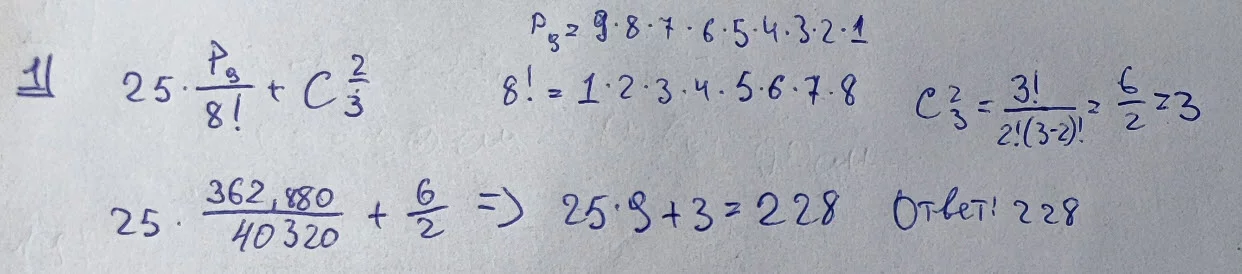 P₉ = 9·8·7·6·5·4·3·2·1
1) 25 · P₉/8! + C 2/3
8! = 1·2·3·4·5·6·7·8
C²₃ = 3!/2!(3-2)! = 6/2 = 3
25 · 362,880/40320 + 6/2 => 25·9+3=228 Ответ! 228